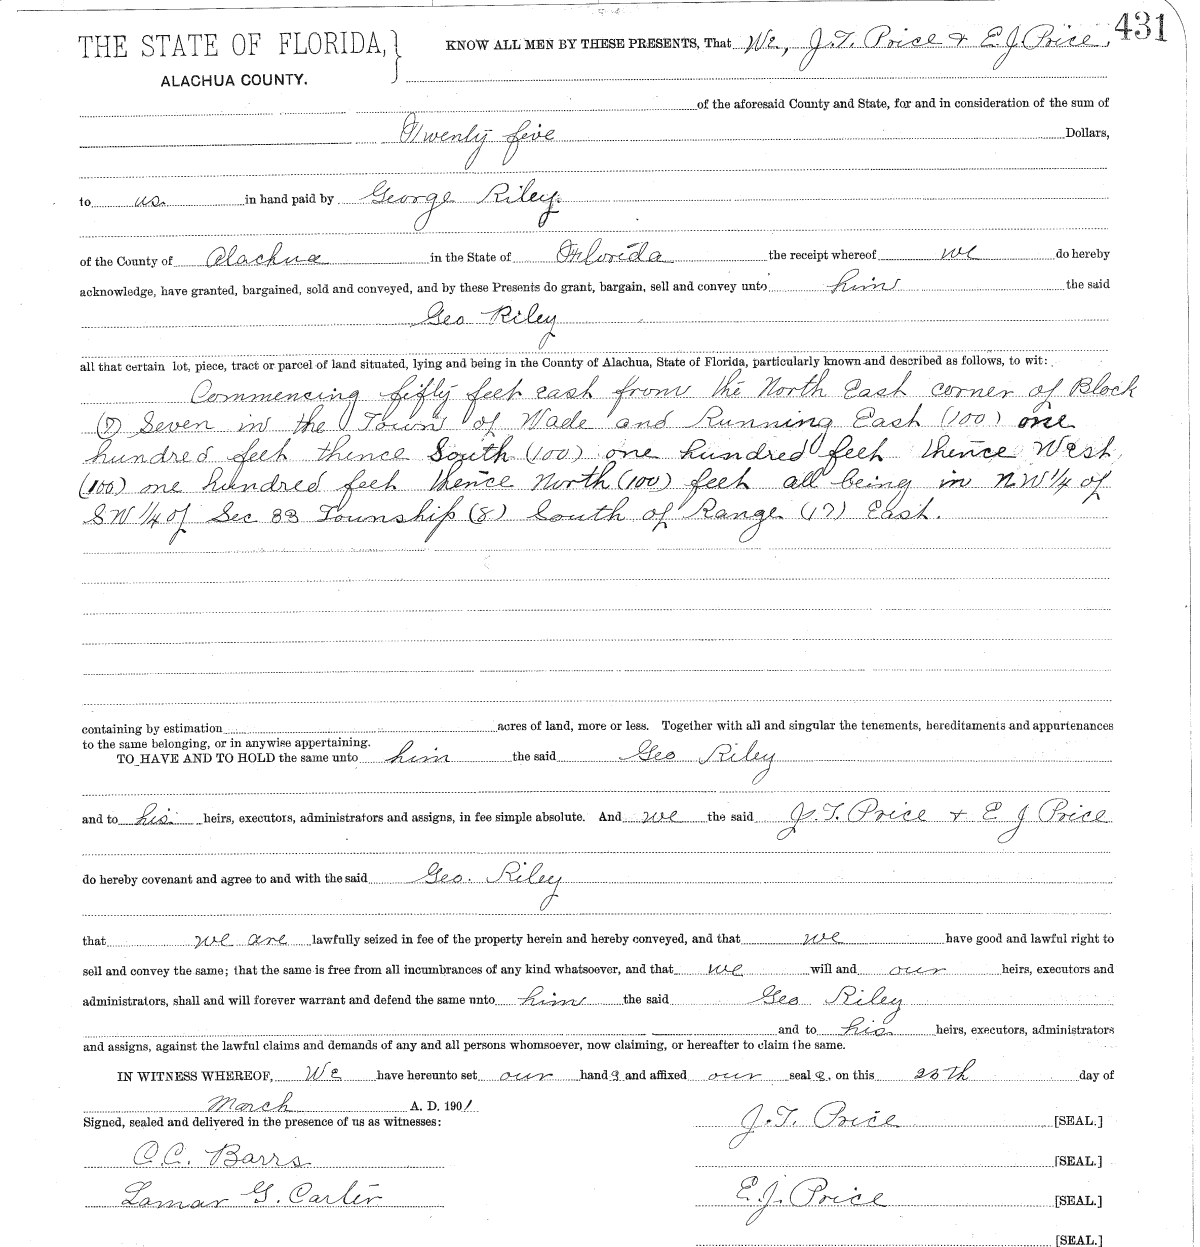 431
THE STATE OF FLORIDA,
ALACHUA COUNTY.
KNOW ALL MEN BY THESE PRESENTS, That We, J. T. Price & E J Price,
of the aforesaid County and State, for and in consideration of the sum of
Twenty five Dollars,
to us in hand paid by George Riley
of the County of Alachua in the State of Florida the receipt whereof we do hereby
acknowledge, have granted, bargained, sold and conveyed, and by these Presents do grant, bargain, sell and convey unto him the said
Geo Riley
all that certain lot, piece, tract or parcel of land situated, lying and being in the County of Alachua, State of Florida, particularly known and described as follows, to wit:
Commencing fifty feet east from the North East corner of Block
(7) Seven in the Town of Wade and Running East (100) one
hundred feet thence South (100) one hundred feet thence West
(100) one hundred feet thence North (100) feet all being in N.W 1/4 of
SW 1/4 of Sec 33 Township (8) South of Range (17) East.
containing by estimation acres of land, more or less. Together with all and singular the tenements, hereditaments and appurtenances
to the same belonging, or in anywise appertaining.
TO HAVE AND TO HOLD the same unto him the said Geo Riley
and to his heirs, executors, administrators and assigns, in fee simple absolute. And we the said J. T. Price & E J Price
do hereby covenant and agree to and with the said Geo. Riley
that we are lawfully seized in fee of the property herein and hereby conveyed, and that we have good and lawful right to
sell and convey the same; that the same is free from all incumbrances of any kind whatsoever, and that we will and our heirs, executors and
administrators, shall and will forever warrant and defend the same unto him the said Geo Riley
and to his heirs, executors, administrators
and assigns, against the lawful claims and demands of any and all persons whomsoever, now claiming, or hereafter to claim the same.
IN WITNESS WHEREOF, We have hereunto set our hands and affixed our seals, on this 25th day of
March A. D. 1901
Signed, sealed and delivered in the presence of us as witnesses:
J. T. Price [SEAL.]
C. C. Barrs [SEAL.]
Lamar G. Carter E. J. Price [SEAL.]
[SEAL.]